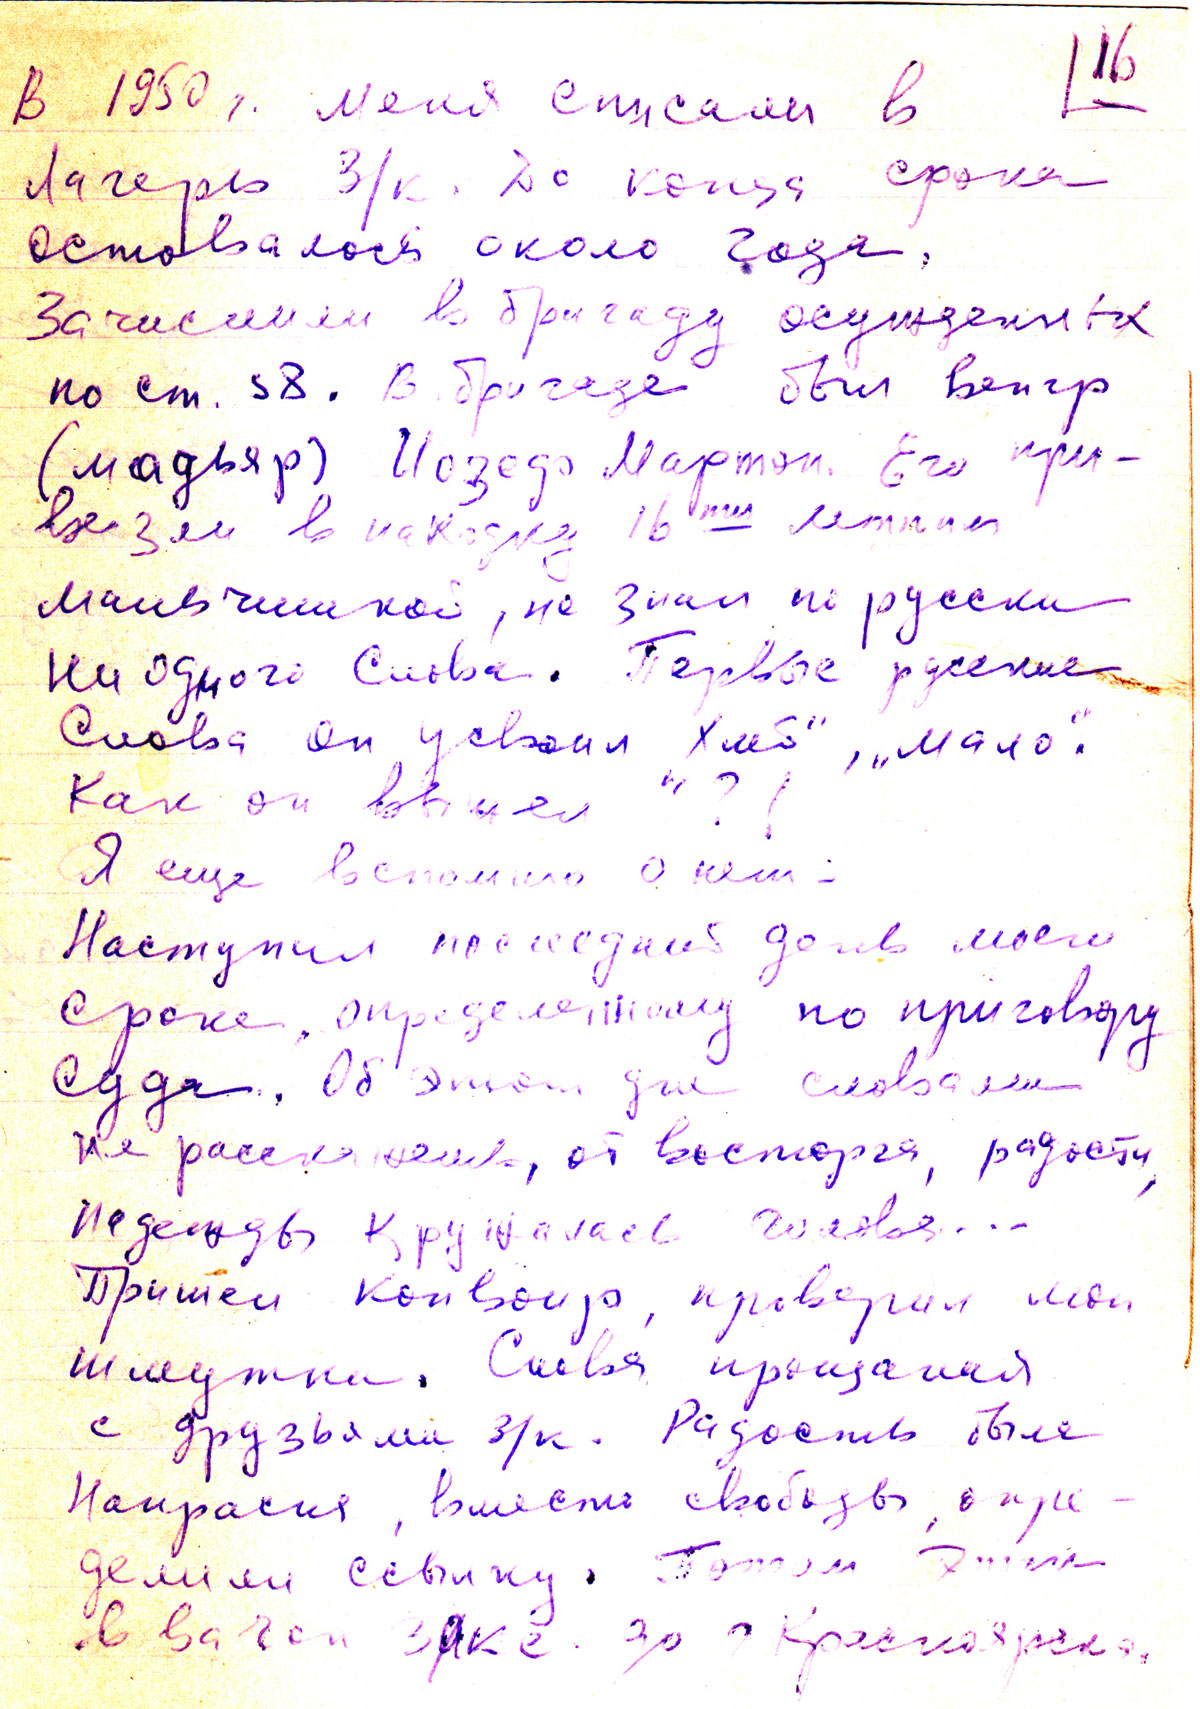 16
В 1950 г. меня списали в
лагерь З/к. До конца срока
оставалось около года.
Зачислили в бригаду осужденных
по ст. 58. В бригаде был венгр
(мадьяр) Иозеф Мартон. Его при-
везли в находку 16ти летним
мальчишкой, не знал по русски
ни одного слова. Первые русские
слова он усвоил хлеб", „мало".
Как он выжил "?!
Я еще вспомню о нем.
Наступил последний день моего
срока, определенному по приговору
суда. Об этом дне словами
не расскажешь, от восторга, радости,
надежды кружилась голова...
Пришел конвоир, проверил мои
шмутки. Слова прощания
с друзьями з/к. Радость была
напрасна, вместо свободы, опре-
делили ссылку. Потом этап
в вагон З/К до г Красноярска.